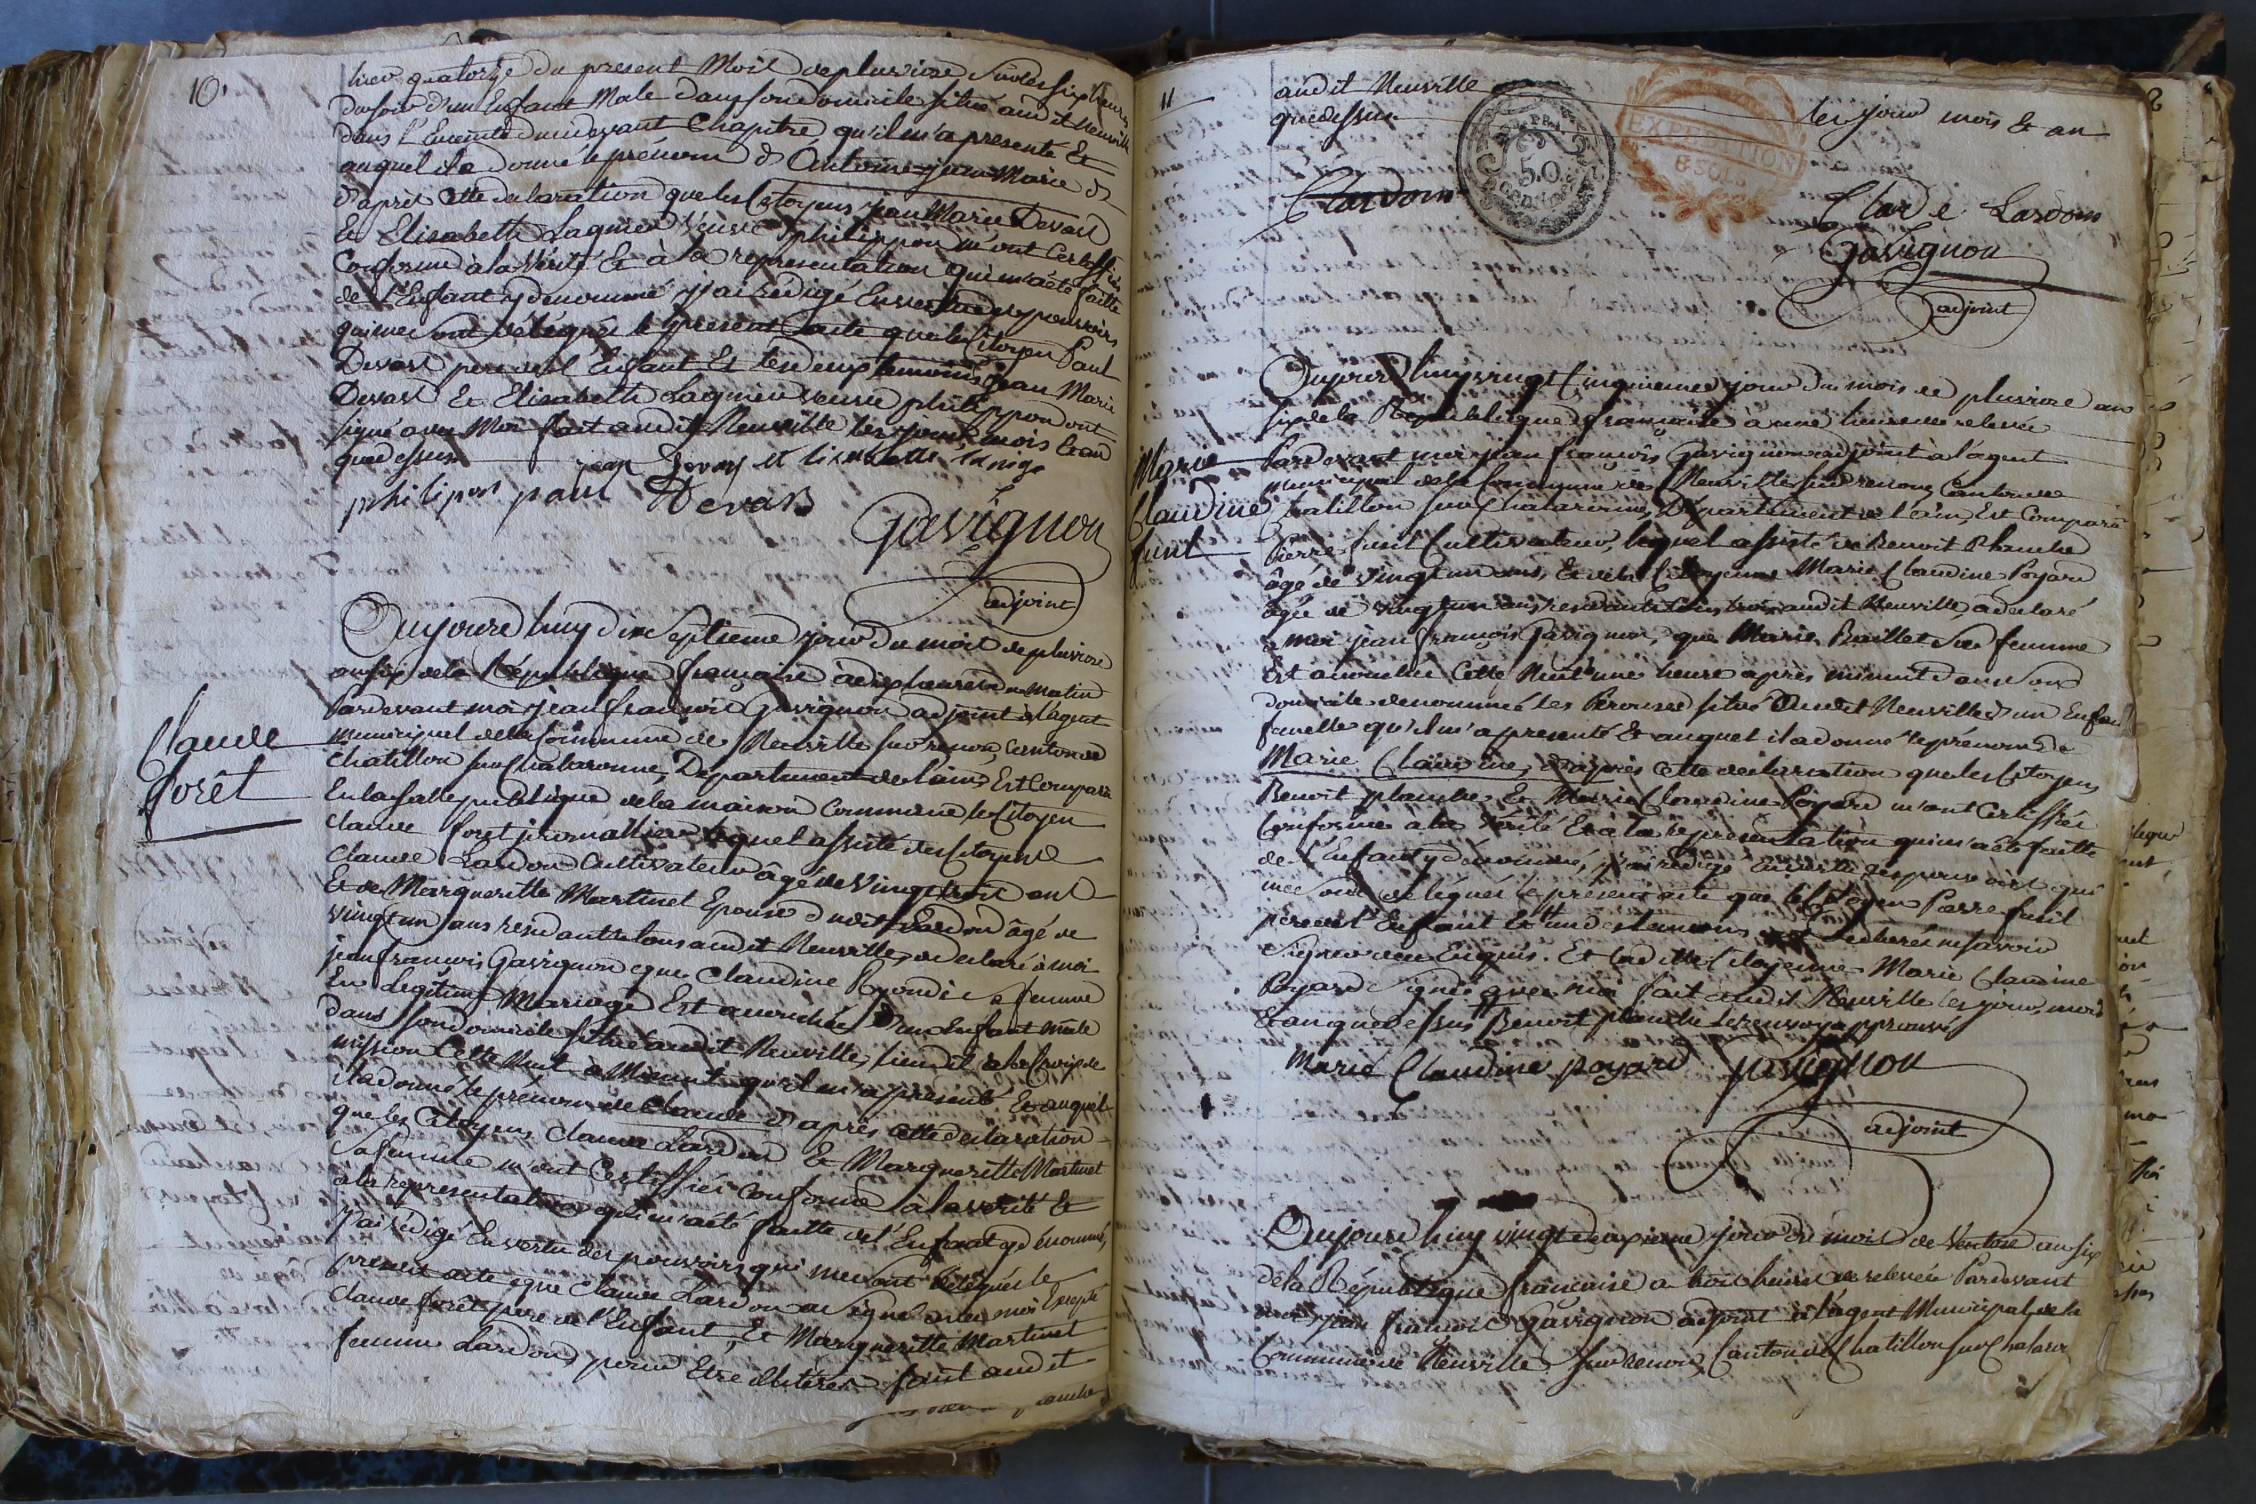 10.
hier quatorze du present Mois de pluviose sur les six heures
du soir d'un Enfant Male dans son domicile situé audit Neuville
dans l'Enceinte du cidevant Chapitre qu'il m'a presenté Et
auquel il a donné le prénom d'Antoine jean Marie
d'après cette declaration que les Citoyens jean Marie Devars
Et Elisabeth Lagnier Veuve philippon m'ont Certiffié
Conforme à la Vérité Et à la representation qui m'a été faitte
de l'Enfant y denommé j'ai rédigé En vertu des pouvoirs
qui me sont délégués le present acte que le Citoyen Paul
Devars pere de l'Enfant Et les deux temoins jean Marie
Devars Et Elisabeth Lagnier veuve philippon ont
signé avec Moi fait audit Neuville les jour, mois Et an
que dessus
jean Devars et
philipon paul Devars
Gavignon
adjoint
Claude
forêt
Aujourd'huy dix Septieme jour du mois de pluviose
an six de la République française à dix heures du matin
Pardevant moi jean françois Gavignon adjoint à l'agent
municipal de la Commune de Neuville sur renon, Canton de
Chatillon sur Chalaronne, Departement de l'ain, Est Comparu
En la salle publique de la maison Commune le Citoyen
claude foret lequel assisté des Citoyens
Claude Lardon Cultivateur âgé de Vingt trois ans
Et de Margueritte Martinet Epouse dudit Lardon âgé de
vingt un ans residants tous audit Neuville, a declaré à moi
jean francois Gavignon que Claudine sa femme
En Legitime Mariage Est accouchée d'un Enfant mâle
dans son domicile situé audit Neuville, lieu dit à la Croix de
mission Cette Nuit à Minuit qu'il m'a présenté Et auquel
il a donné le prénom de Claude d'après cette declaration
que les Citoyens claude Lardon Et Margueritte Martinet
sa femme m'ont Certiffiés conforme à la verité Et
à la representation qui m'a été faitte de l'Enfant y dénommé,
j'ai rédigé En vertu des pouvoirs qui me sont délégués le
present acte que Claude Lardon a signé avec moi Excepté
claude forêt pere de l'Enfant, Et Margueritte Martinet
femme Lardon, pour Etre illitérés fait audit
11
audit Neuville les jour mois Et an
que dessus
C Lardon
PAP. REP.
50
CENT.
EXPEDITION
8 SOLS
Claude Lardon
Gavignon
adjoint
Marie
Claudine
fusil
Aujourd'huy vingt Cinquieme jour du mois de pluviose an
six de la République française à une heure de relevée
Pardevant moi jean françois Gavignon adjoint à l'agent
municipal de la Commune de Neuville sur renon, Canton de
Chatillon sur Chalaronne, Département de l'ain, Est Comparu
Pierre fusil Cultivateur, lequel assisté de Benoit Planche
âgé de Vingt un ans, Et de la Citoyenne Marie Claudine Poyard
âgée de vingt un ans residants tous trois audit Neuville, a declaré
à moi jean françois Gavignon, que Marie Baillet sa femme
Est accouchée Cette Nuit une heure après minuit dans son
domicile denommé Les Perouses situé audit Neuville d'un Enfant
femelle qu'il m'a presenté Et auquel il a donné le prénom de
Marie Claudine, d'après cette declaration que les Citoyens
Benoit planche Et Marie Claudine Poyard m'ont Certiffiés
Conforme à la Vérité Et à la representation qui m'a été faitte
de l'Enfant y dénommé, j'ai rédigé En vertu des pouvoirs qui
me sont délégués le present acte que le Citoyen Pierre fusil
pere de l'Enfant Et un des temoins ont declarés ne savoir
signer de ce Enquis. Et Laditte Citoyenne Marie Claudine
Poyard signé avec moi fait audit Neuville les jour, mois
Et an que dessus Benoit planche le renvoy approuvé
Marie Claudine poyard Gavignon
adjoint
Aujourd'huy vingt deuxieme jour du mois de Ventose an six
de la République française à trois heures de relevée Pardevant
moi jean francois Gavignon adjoint à l'agent Municipal de la
Commune de Neuville sur renon, Canton de Chatillon sur Chalaron